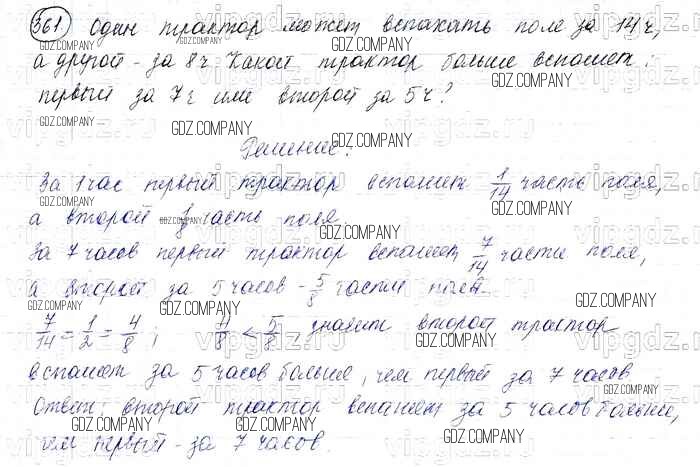 361 Один трактор может вспахать поле за 14 ч,
а другой - за 8 ч. Какой трактор больше вспашет:
первый за 7 ч или второй за 5 ч?
Решение:
За 1 час первый трактор вспашет 1/14 часть поля,
а второй - 1/8 часть поля.
За 7 часов первый трактор вспашет 7/14 части поля,
а второй за 5 часов - 5/8 части поля.
7/14 = 1/2 = 4/8 ; 4/8 < 5/8, значит второй трактор
вспашет за 5 часов больше, чем первый за 7 часов
Ответ: второй трактор вспашет за 5 часов больше,
чем первый - за 7 часов.
GDZ.COMPANY
vipgdz.ru